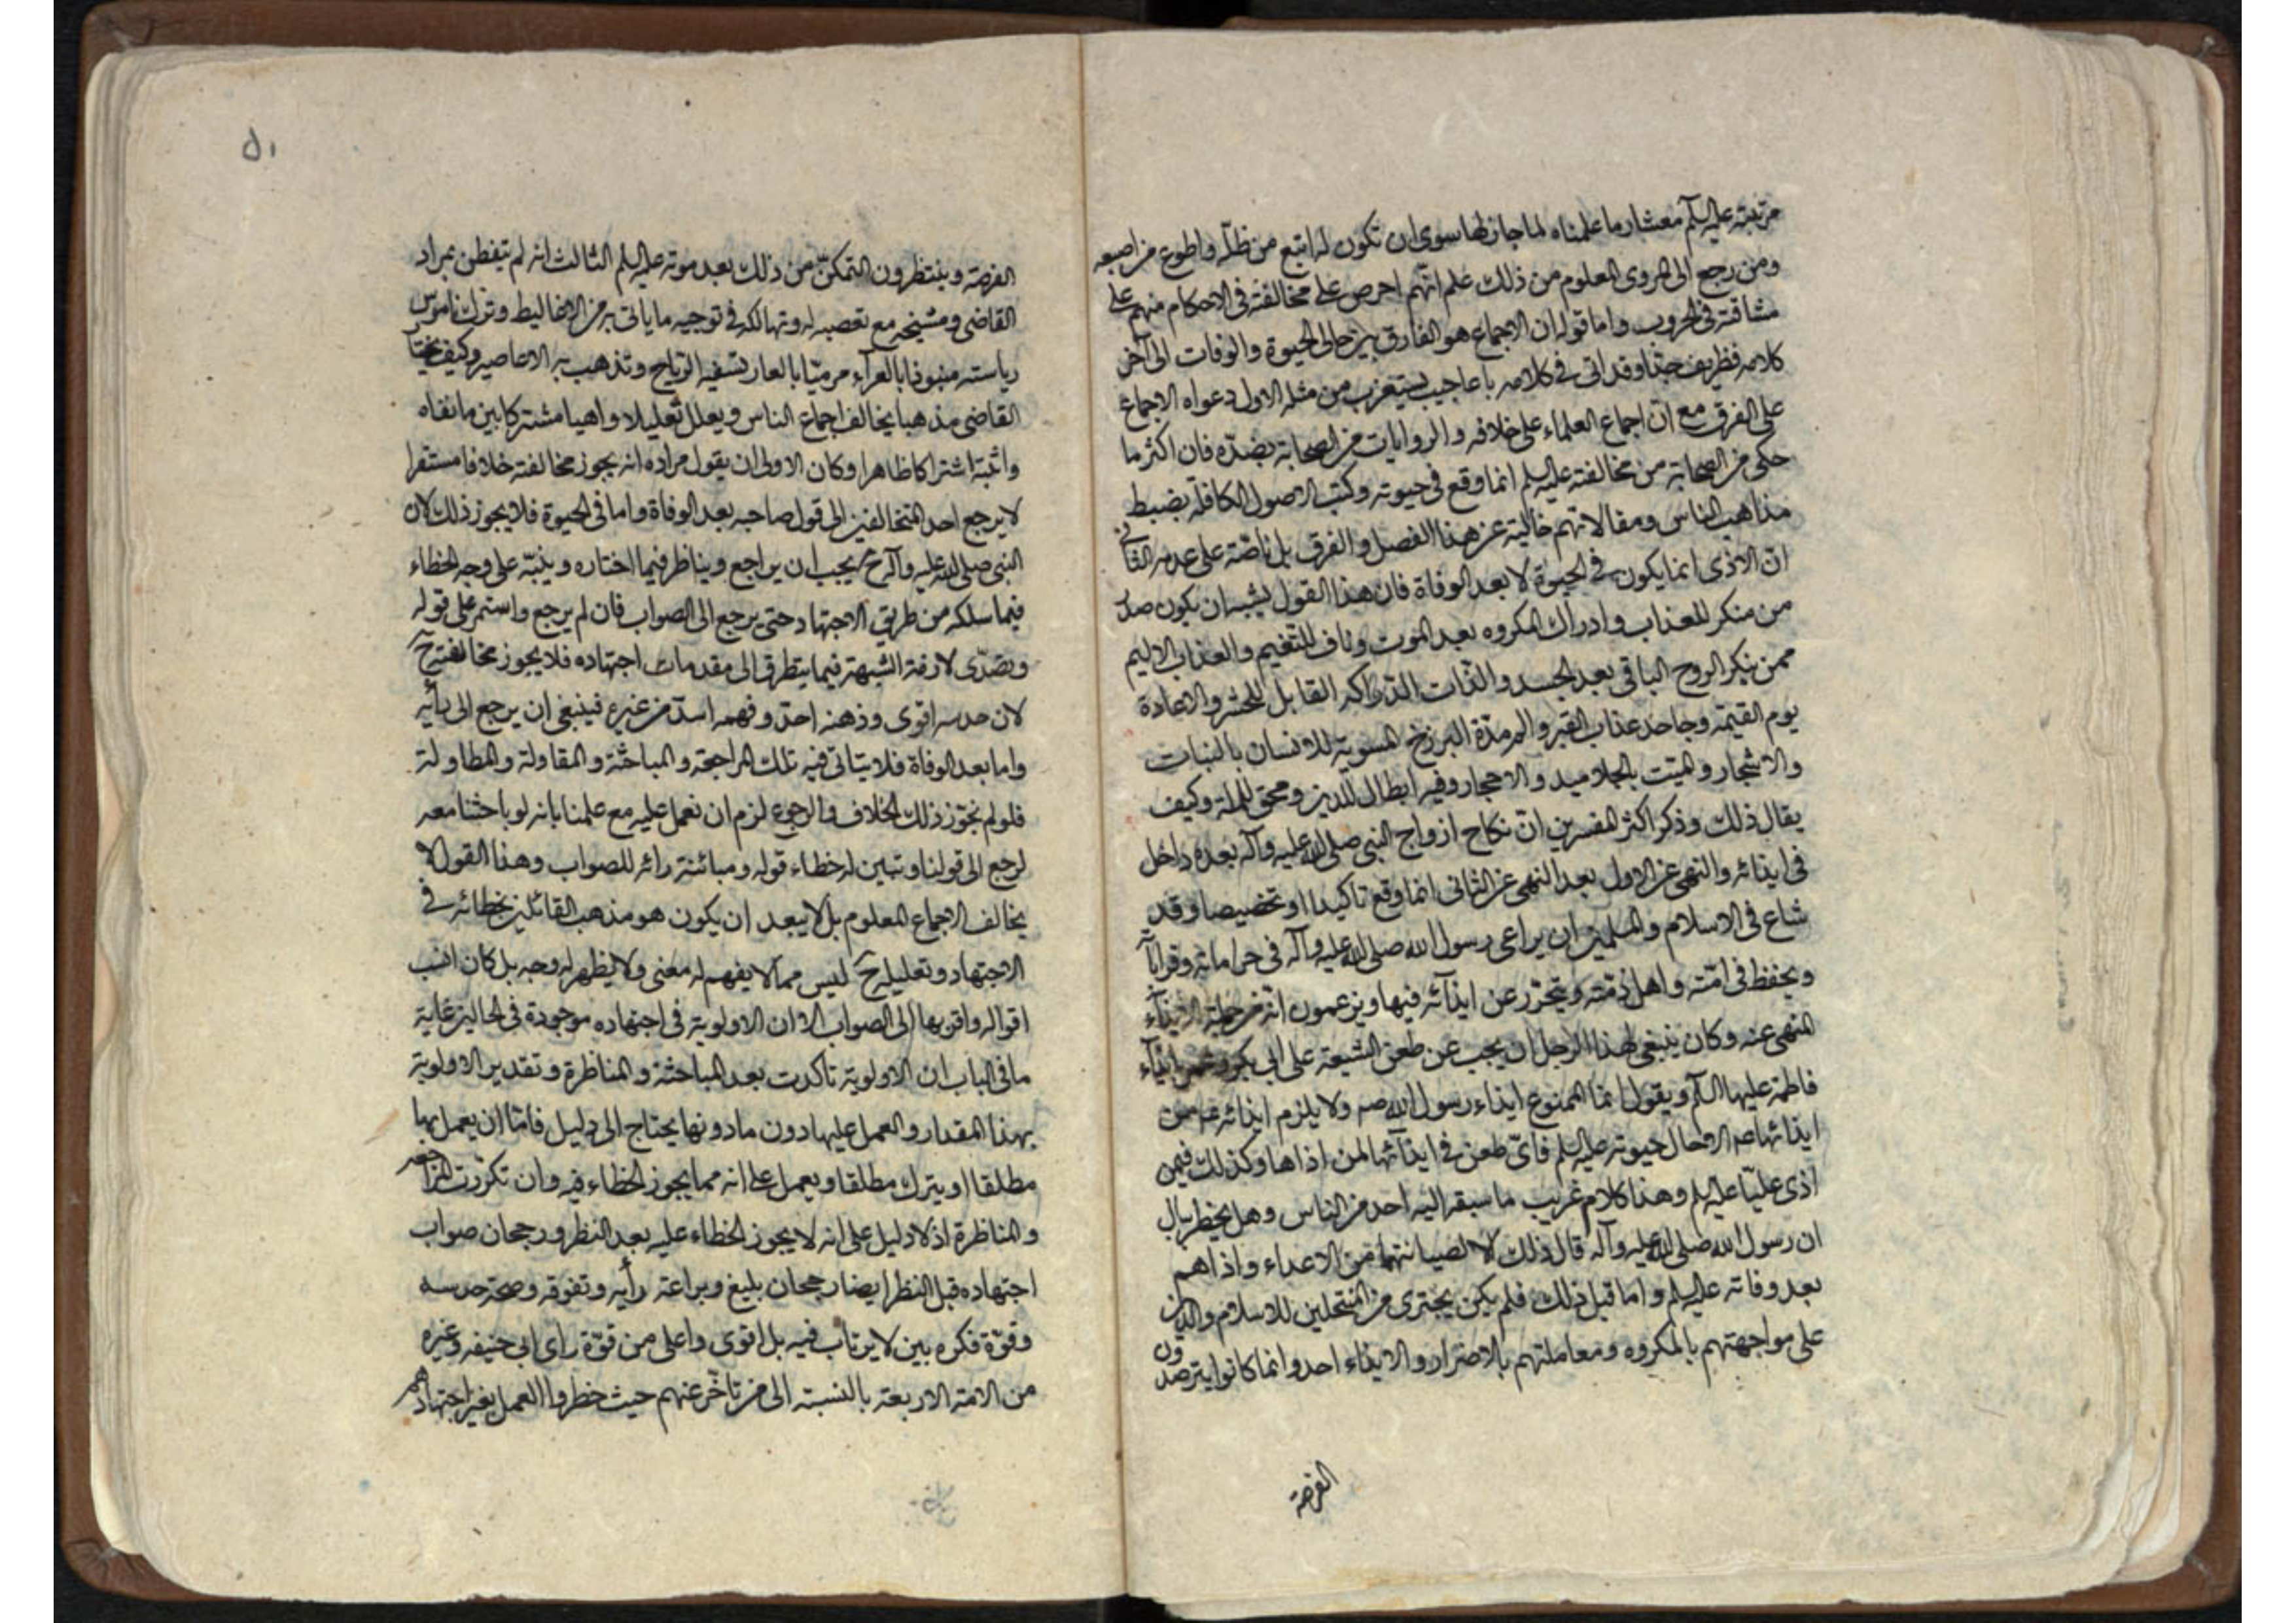 مرتبته عليه السلم معشار ما علمناه لما جاز لها سوى ان تكون له اتبع من ظله واطوع من اصبعه
ومن رجع الى المروى المعلوم من ذلك علم انهم احرص على مخالفته فى الاحكام منهم على
مشاقته فى الحروب واما قوله ان الاجماع هو الفارق بين حالى الحيوة والوفات الى آخر
كلامه فظريف جدا وقد اتى فى كلامه باعاجيب يستغرب من مثله الاول دعواه الاجماع
على الفرق مع ان اجماع العلماء على خلافه والروايات من الصحابة بضده فان اكثر ما
حكى من الصحابة من مخالفته عليه السلم انما وقع فى حيوته وكتب الاصول الكافلة بضبط
مذاهب الناس ومقالاتهم خالية عن هذا الفصل والفرق بل ناصة على عدمه الثانى
ان الاذى انما يكون فى الحيوة لا بعد الوفاة فان هذا القول يشبه ان يكون صدر
من منكر للعذاب وادراك المكروه بعد الموت وناف للتنعيم والعذاب الاليم
ممن ينكر الروح الباقى بعد الجسد والذات الدراكه القابل للحشر والاعادة
يوم القيمة وجاحد عذاب القبر والمر مدة البرزخ المسوية للانسان بالنبات
والاشجار والميت بالجلاميد والاحجار وفيه ابطال للدين ومحق للملة وكيف
يقال ذلك وذكر اكثر المفسرين ان نكاح ازواج النبى صلى الله عليه وآله بعده داخل
فى ايذائه والنهى عن الاول بعد النهى عن الثانى انما وقع تاكيدا او تخصيصا وقد
شاع فى الاسلام والمسلمين ان يراعى رسول الله صلى الله عليه وآله فى حراماته وقراباته
ويحفظ فى امته واهل ذمته ويتحرز عن ايذائه فيها ويزعمون انه من جملة الايذاء
المنهى عنه وكان ينبغى لهذا الرجل ان يجيب عن طعن الشيعة على ابى بكر وعمر ايذاء
فاطمة عليها السلم ويقول انما الممنوع ايذاء رسول الله صم ولا يلزم ايذائه عم من
ايذائها صم الا حال حيوته عليه السلم فاى طعن فى ايذائها لمن اذاها وكذلك فيمن
اذى عليا عليه السلم وهذا كلام غريب ما سبقه اليه احد من الناس وهل يخطر ببال
ان رسول الله صلى الله عليه وآله قال ذلك الا لصيانتهما من الاعداء واذاهم
بعد وفاته عليه السلم واما قبل ذلك فلم يكن يجترى من المنتحلين للاسلام والدين
على مواجهتهم بالمكروه ومعاملتهم بالاضرار والايذاء احد وانما كانوا يترصدون
الفرصة
۵۱
الفرصة وينتظرون التمكن من ذلك بعد موته عليه السلم الثالث انه لم يتفطن بمراد
القاضى ومشيخه مع تعصبه له وتهالكه فى توجيه ما ياتى به من الاغاليط وترك ناموس
رياسته منبوذا بالعراء مرميا بالعار تسفيه الرياح وتذهب به الاعاصير وكيف يختار
القاضى مذهبا يخالف اجماع الناس ويعلل تعليلا واهيا مشتركا بين ما نفاه
واثبته اشتراكا ظاهرا وكان الاولى ان يقول مراده انه يجوز مخالفته خلافا مستقرا
لا يرجع احد المتخالفين الى قول صاحبه بعد الوفاة واما فى الحيوة فلا يجوز ذلك لان
النبى صلى الله عليه وآله ح يجب ان يراجع ويناظر فيما اختاره وينبه على وجه الخطاء
فيما سلكه من طريق الاجتهاد حتى يرجع الى الصواب فان لم يرجع واستمر على قوله
وتصدى لازفة الشبهة فيما يتطرق الى مقدمات اجتهاده فلا يجوز مخالفته ح
لان حدسه اقوى وذهنه احد وفهمه اسد من غيره فينبغى ان يرجع الى رأيه
واما بعد الوفاة فلا يتاتى فيه تلك المراجعة والمباحثة والمقاولة والمطاولة
فلو لم نجوز ذلك الخلاف والرجوع لزم ان نعمل عليه مع علمنا بانه لو باحثنا معه
لرجع الى قولنا وتبين له خطاء قوله ومباينة رائه للصواب وهذا القول لا
يخالف الاجماع المعلوم بل لا يبعد ان يكون هو مذهب القائلين بخطائه فى
الاجتهاد وتعليله ح ليس مما لا يفهم له معنى ولا يظهر له وجه بل كان انسب
اقواله واقربها الى الصواب الا ان الاولوية فى اجتهاده موجودة فى الحالين غاية
ما فى الباب ان الاولوية تاكدت بعد المباحثة والمناظرة وتقدير الاولوية
بهذا المقدار والعمل عليها دون ما دونها يحتاج الى دليل فاما ان يعمل بها
مطلقا او يترك مطلقا ويعمل على انه مما يجوز الخطاء فيه وان تكررت المراجعه
والمناظرة اذ لا دليل على انه لا يجوز الخطاء عليه بعد النظر ورجحان صواب
اجتهاده قبل النظر ايضا رجحان بليغ وبراعته رأيه وتفوقه وصحة حدسه
وقوة فكره بين لا يرتاب فيه بل اقوى واعلى من قوة راى ابى حنيفه وغيره
من الائمة الاربعة بالنسبة الى من تاخر عنهم حيث حظروا العمل بغير اجتهادهم